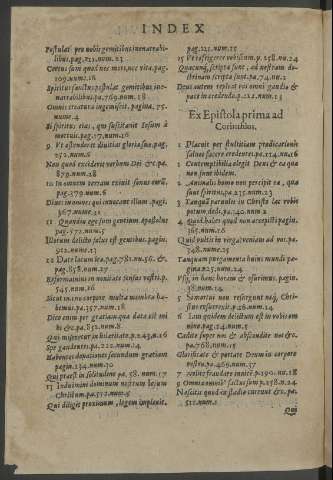 INDEX
Postulat pro nobis gemitibus inenarrabi-
libus. pag. 721. num. 23
Certus sum quod nec mors, nec vita. pag.
109. num. 16
Spiritus sanctus postulat gemitibus inenar-
rabilibus. pa. 769. num. 18
Omnis creatura ingemiscit. pagina, 75.
nume. 4
Si spiritus eius, qui suscitauit Iesum à
mortuis. pag. 17. num. 16
9 Vt ostenderet diuitias gloriæ suæ. pag.
752. num. 6
Non quod exciderit verbum Dei &c. pa.
879. num. 28
10 In omnem terram exiuit sonus eorũ.
pag. 379. num. 6
Diues in omnes qui inuocant illum. pagi.
367. numer. 21
11 Quandiu ego sum gentium Apostolus
pag. 572. num. 5
Illorum delicto salus est gentibus. pagin.
912. num. 13
12 Date locum iræ. pag. 781. nu. 56. &
pag. 858. num. 27
Reformamini in nouitate sensus vestri. p.
545. num. 16
Sicut in vno corpore multa membra ha-
bemus. pa. 357. num. 18
Dico enim per gratiam quæ data est mi
hi &c. pa. 852. num. 8
Qui miseretur in hilaritate. p. 243. n. 16
Spe gaudentes. pa. 212. num. 14
Habentes donationes secundum gratiam
pagin. 234. num. 10
Qui præest in solicitudine pa. 58. num. 17
13 Induimini dominum nostrum Iesum
Christum. pa. 512. num. 15
Qui diligit proximum, legem impleuit.
pag. 221. num. 15
15 Vt refrigerer vobiscum. p. 258. nu. 24
Quæcunq; scripta sunt, ad nostram do-
ctrinam scripta sunt. pa. 74. nu. 2
Deus autem repleat vos omni gaudio &
pace in credendo. p. 212. num. 13
Ex Epistola prima ad
Corinthios.
1 Placuit per stultitiam prædicationis
saluos facere credentes. pa. 114. nu. 16
Contemptibilia elegit Deus & ea quæ
non sunt ibidem.
2 Animalis homo non percipit ea, quæ
sunt spiritus. pa. 235. num. 23
3 Tanquã paruulis in Christo lac vobis
potum dedi. pa. 140. num. 2
4 Quid habes quod non accepisti pagin.
365. num. 16
Quid vultis in virga veniam ad vos. pa.
748. num. 25
Tanquam purgamenta huius mundi pa-
gina. 25. num. 24
Vsq; in hanc horam & esurimus. pagin.
38. num. 14
5 Si mortui non resurgunt neq; Chri-
stus resurrexit. p. 26. num. 10
6 Iam quidem delictum est in vobis om
nino pag. 14. num. 5
Cedite super nos & abscondite nos &c.
pa. 768. num. 15
Glorificate & portate Deum in corpore
vestro. pa. 469. num. 37
7 nolite fraudare inuicẽ p. 190. nu. 18
5 Omnia omnib9 factus sum p. 258. n. 24
Nescitis quod in stadio currunt &c. pa.
512. num. 1
Qui